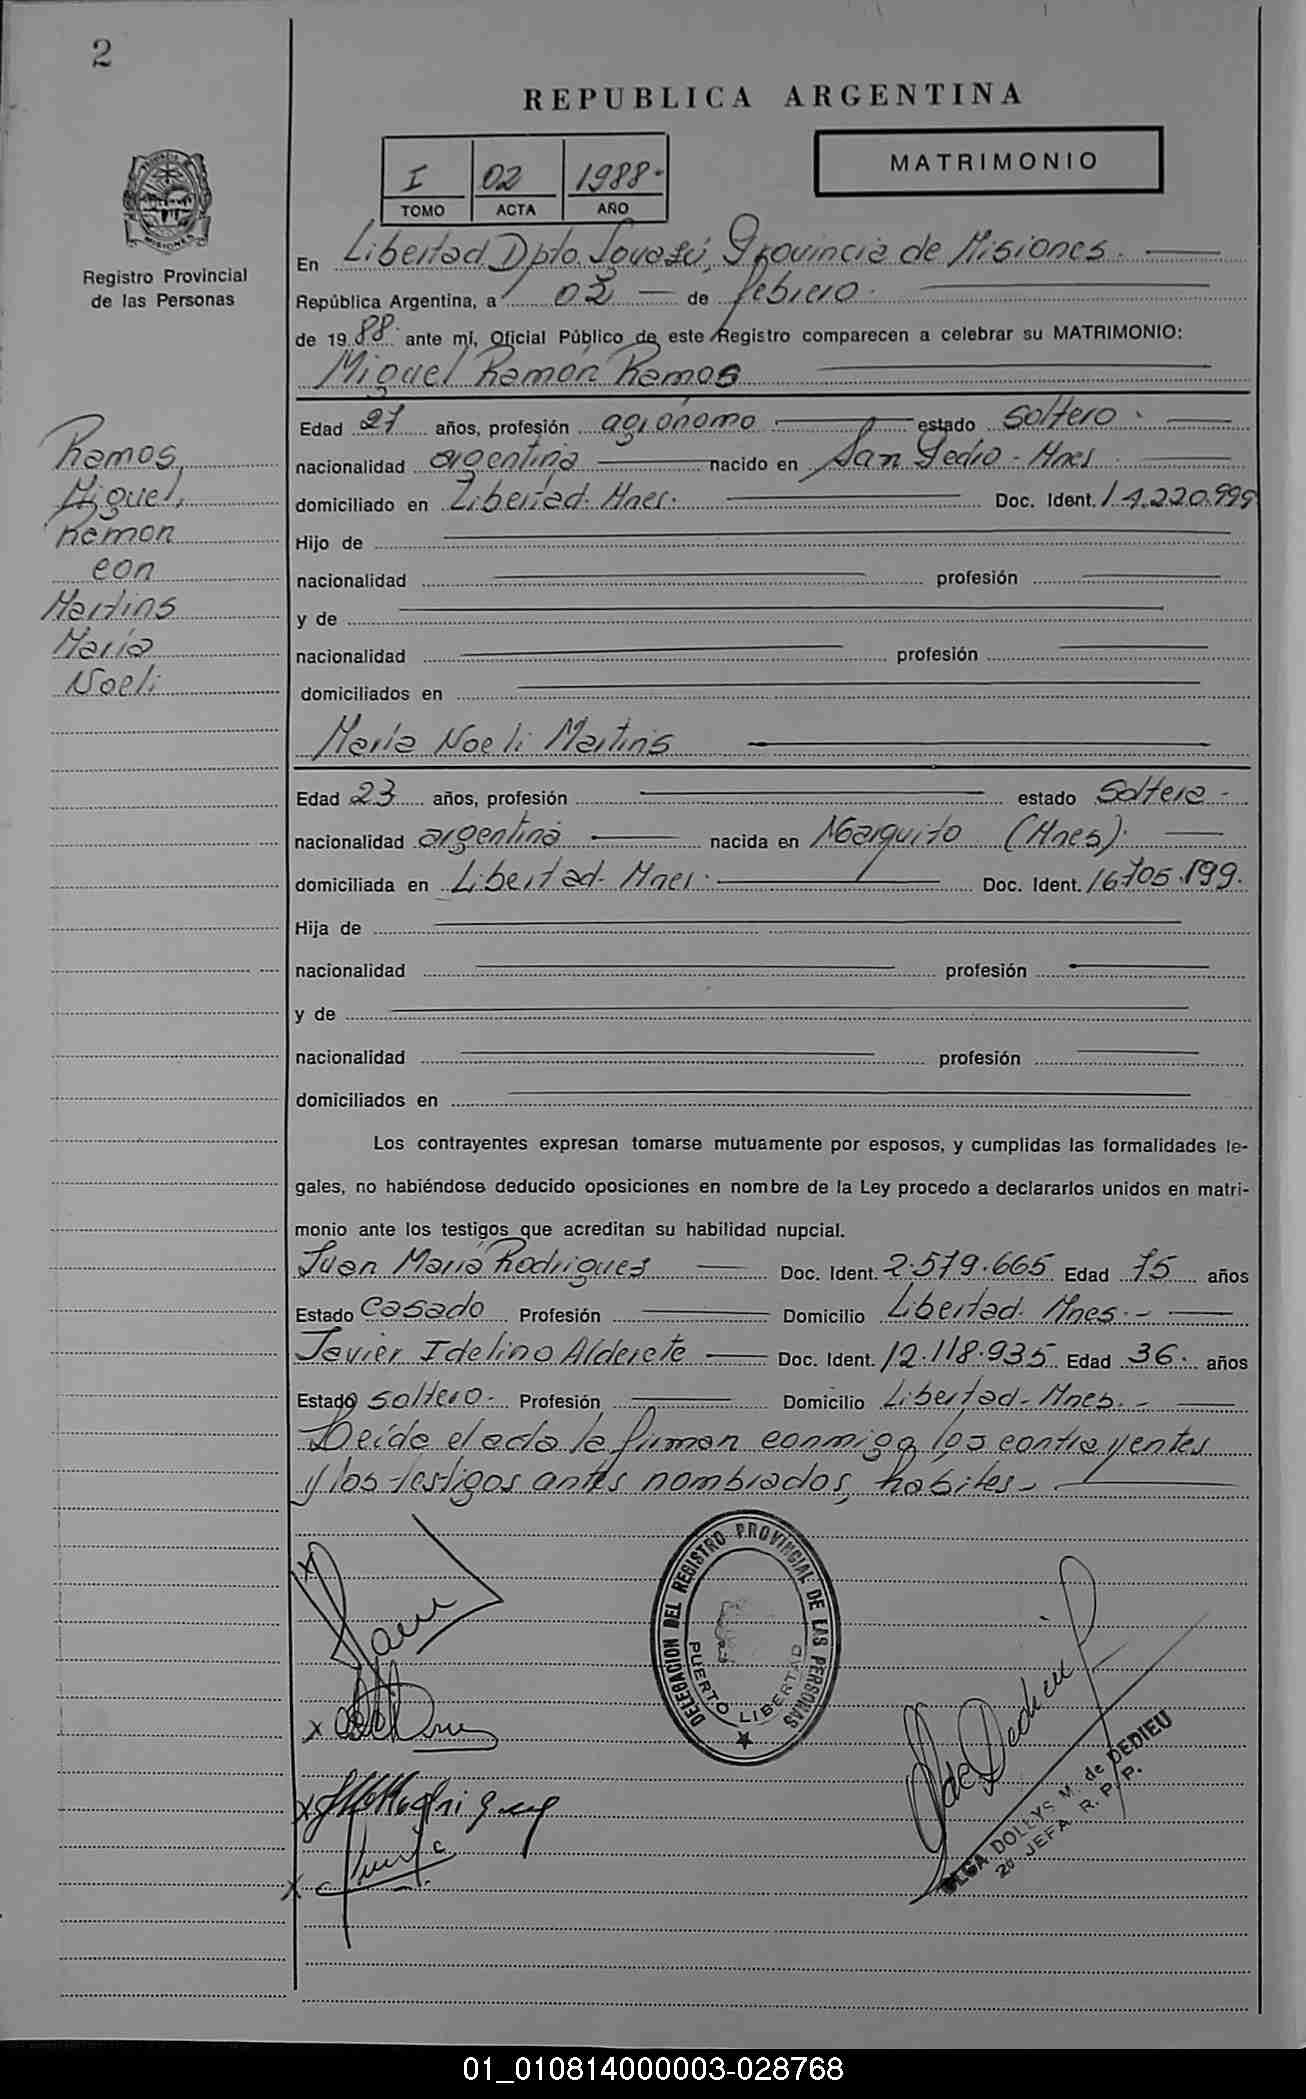 2
REPUBLICA ARGENTINA
MATRIMONIO
I 02 1988.
TOMO ACTA AÑO
PROVINCIA DE MISIONES
Registro Provincial
de las Personas
En Libertad Dpto. Iguazú, Provincia de Misiones.
República Argentina, a 02 de febrero.
de 1988. ante mí, Oficial Público de este Registro comparecen a celebrar su MATRIMONIO:
Miguel Ramón Ramos
Edad 27 años, profesión agrónomo estado soltero.
nacionalidad argentina nacido en San Pedro - Mnes
domiciliado en Libertad. Mnes. Doc. Ident. 14.220.999
Hijo de
nacionalidad profesión
y de
nacionalidad profesión
domiciliados en
Ramos,
Miguel,
Ramon
con
Martins
María
Noeli
María Noeli Martins
Edad 23 años, profesión estado Soltera -
nacionalidad argentina nacida en (Mnes).
domiciliada en Libertad. Mnes. Doc. Ident. 16.705.199.
Hija de
nacionalidad profesión
y de
nacionalidad profesión
domiciliados en
Los contrayentes expresan tomarse mutuamente por esposos, y cumplidas las formalidades le-
gales, no habiéndose deducido oposiciones en nombre de la Ley procedo a declararlos unidos en matri-
monio ante los testigos que acreditan su habilidad nupcial.
Juan María Rodrigues Doc. Ident. 2.579.665 Edad 75 años
Estado Casado Profesión Domicilio Libertad. Mnes. -
Javier Idelino Alderete Doc. Ident. 12.118.935 Edad 36. años
Estado soltero. Profesión Domicilio Libertad - Mnes. -
Leída el acta la firman conmigo los contrayentes
y los testigos antes nombrados, habiles -
DELEGACION DEL REGISTRO PROVINCIAL DE LAS PERSONAS
PUERTO LIBERTAD
OLGA DOLLYS M. de DEDIEU
2º JEFA R. P. P.
01_010814000003-028768